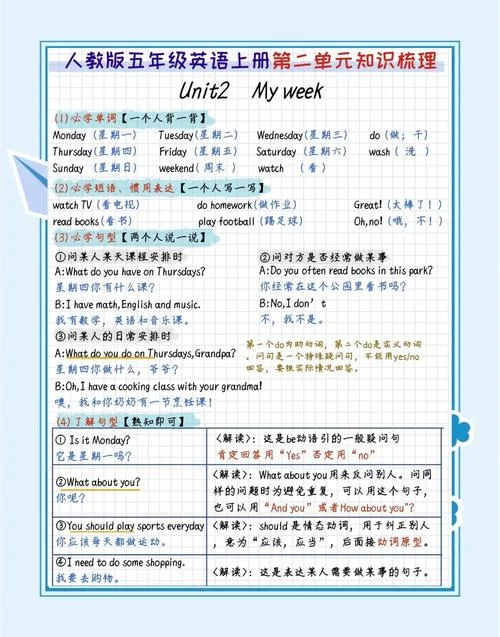 人教版五年级英语上册第二单元知识梳理
Unit2 My week
(1) 必学单词【一个人背一背】
Monday (星期一) Tuesday(星期二) Wednesday(星期三) do (做;干)
Thursday(星期四) Friday (星期五) Saturday (星期六) wash (洗)
Sunday (星期日) weekend(周末) watch (看)
(2) 必学短语、惯用表达【一个人写一写】
watch TV (看电视) do homework(做作业) Great! (太棒了!)
read books(看书) play football (踢足球) Oh,no! (哦,不!)
(3) 必学句型【两个人说一说】
①问某人某天课程安排时
A:What do you have on Thursdays?
星期四你有什么课?
B:I have math,English and music.
我有数学,英语和音乐课。
②问对方是否经常做某事
A:Do you often read books in this park?
你经常在这个公园里看书吗?
B:No,I don't
不,我不是。
③问某人的日常安排时
A:What do you do on Thursdays,Grandpa?
星期四你做什么,爷爷?
B:Oh,I have a cooking class with your grandma!
噢,我和你奶奶有一节烹饪课!
第一个do为助动词,第二个do是实义动词。问句是一个特殊疑问句,不能用yes/no
回答,要根实际情况回答。
(4) 了解句型【熟知即可】
① Is it Monday?
它是星期一吗?
<解读>:这是be动语引的一般疑问句
肯定回答用“Yes”否定用“no”
②What about you?
你呢?
<解读>:What about you用来反问别人。问同
样的问题时为避免重复,可以用这个句子,
也可以用“And you”或者How about you"?
③You should play sports everyday
你应该每天都做运动。
<解读>:should是情态动词,用于纠正别人
,意为“应该,应当”,后面接动词原型。
④I need to do some shopping.
我要去购物。
<解读>:这是表达某人需要做某事的句子。